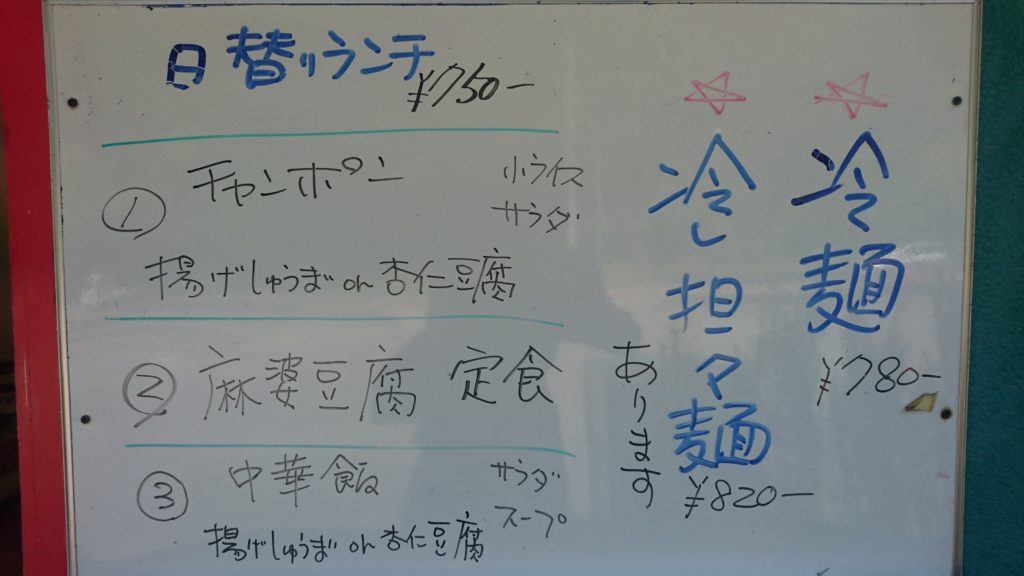 日替りランチ
¥750ー
① チャンポン
小ライス
サラダ
揚げしゅうまい or 杏仁豆腐
② 麻婆豆腐 定食
③ 中華飯
サラダ
スープ
揚げしゅうまい or 杏仁豆腐
☆冷麺
¥780ー
☆冷し担々麺
¥820ー
あります